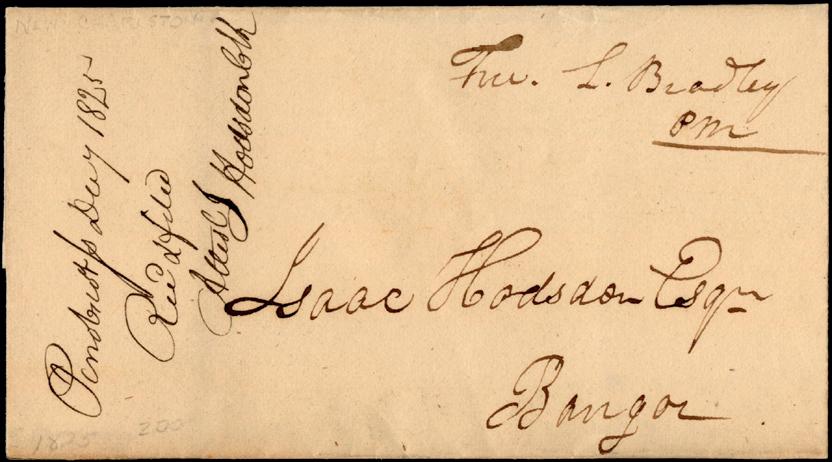 NEW CHARLESTON
Free. L. Bradley
PM
Isaac Hodsdon Esqr
Bangor
Penobscot ss Decr 7 1825
Recd & filed
Attest I Hodsdon Clk
1825 200